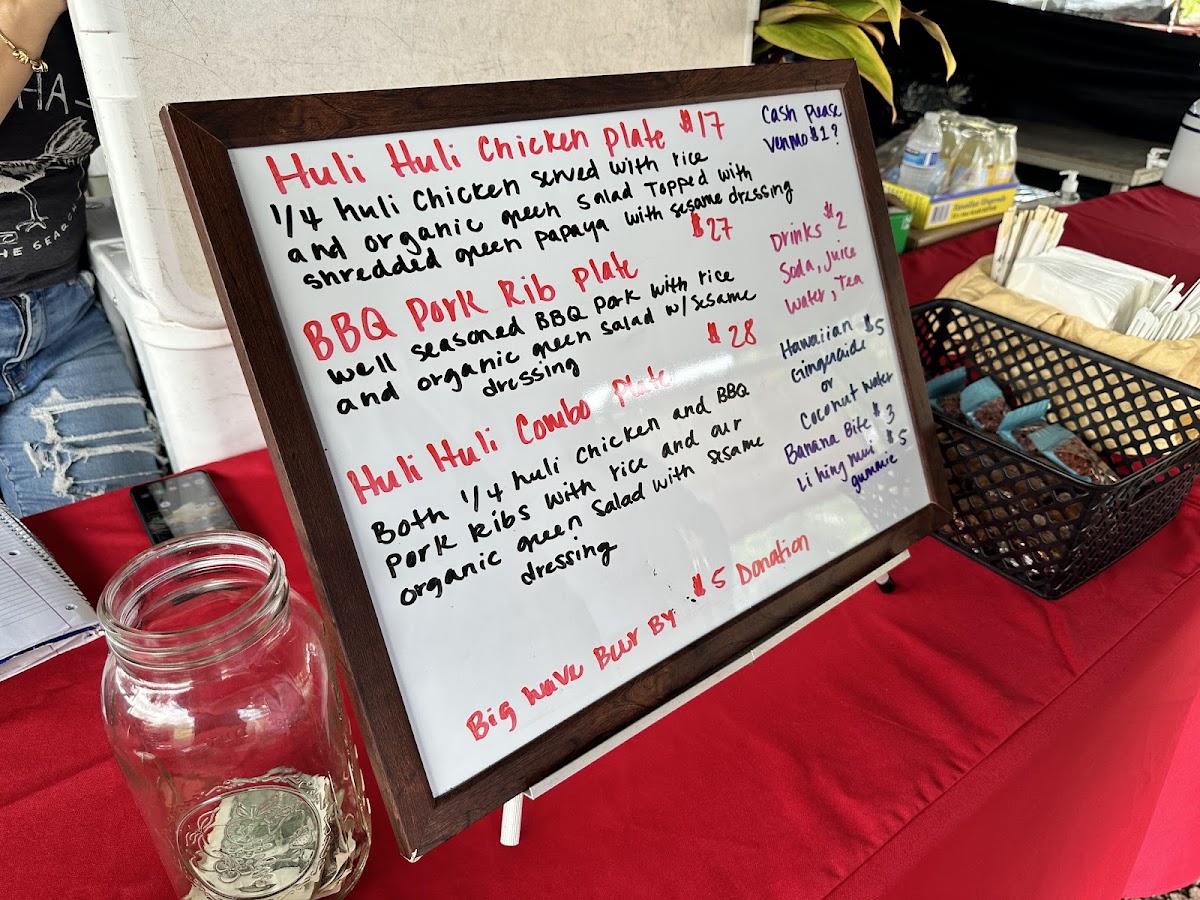 Huli Huli Chicken Plate $17
1/4 huli Chicken served with rice
and organic green salad Topped with
shredded green papaya with sesame dressing
BBQ Pork Rib Plate $27
well seasoned BBQ Pork with rice
and organic green salad w/sesame
dressing
Huli Huli Combo Plate $28
Both 1/4 huli chicken and BBQ
pork Ribs with rice and our
organic green salad with sesame
dressing
Big wave Beer By: $5 Donation
Cash please
venmo $1?
Drinks $2
Soda, juice
water, tea
Hawaiian $5
Gingeraide
or
Coconut water
Banana Bite $3
Li hing mui $5
gummie
HA
HE SEA